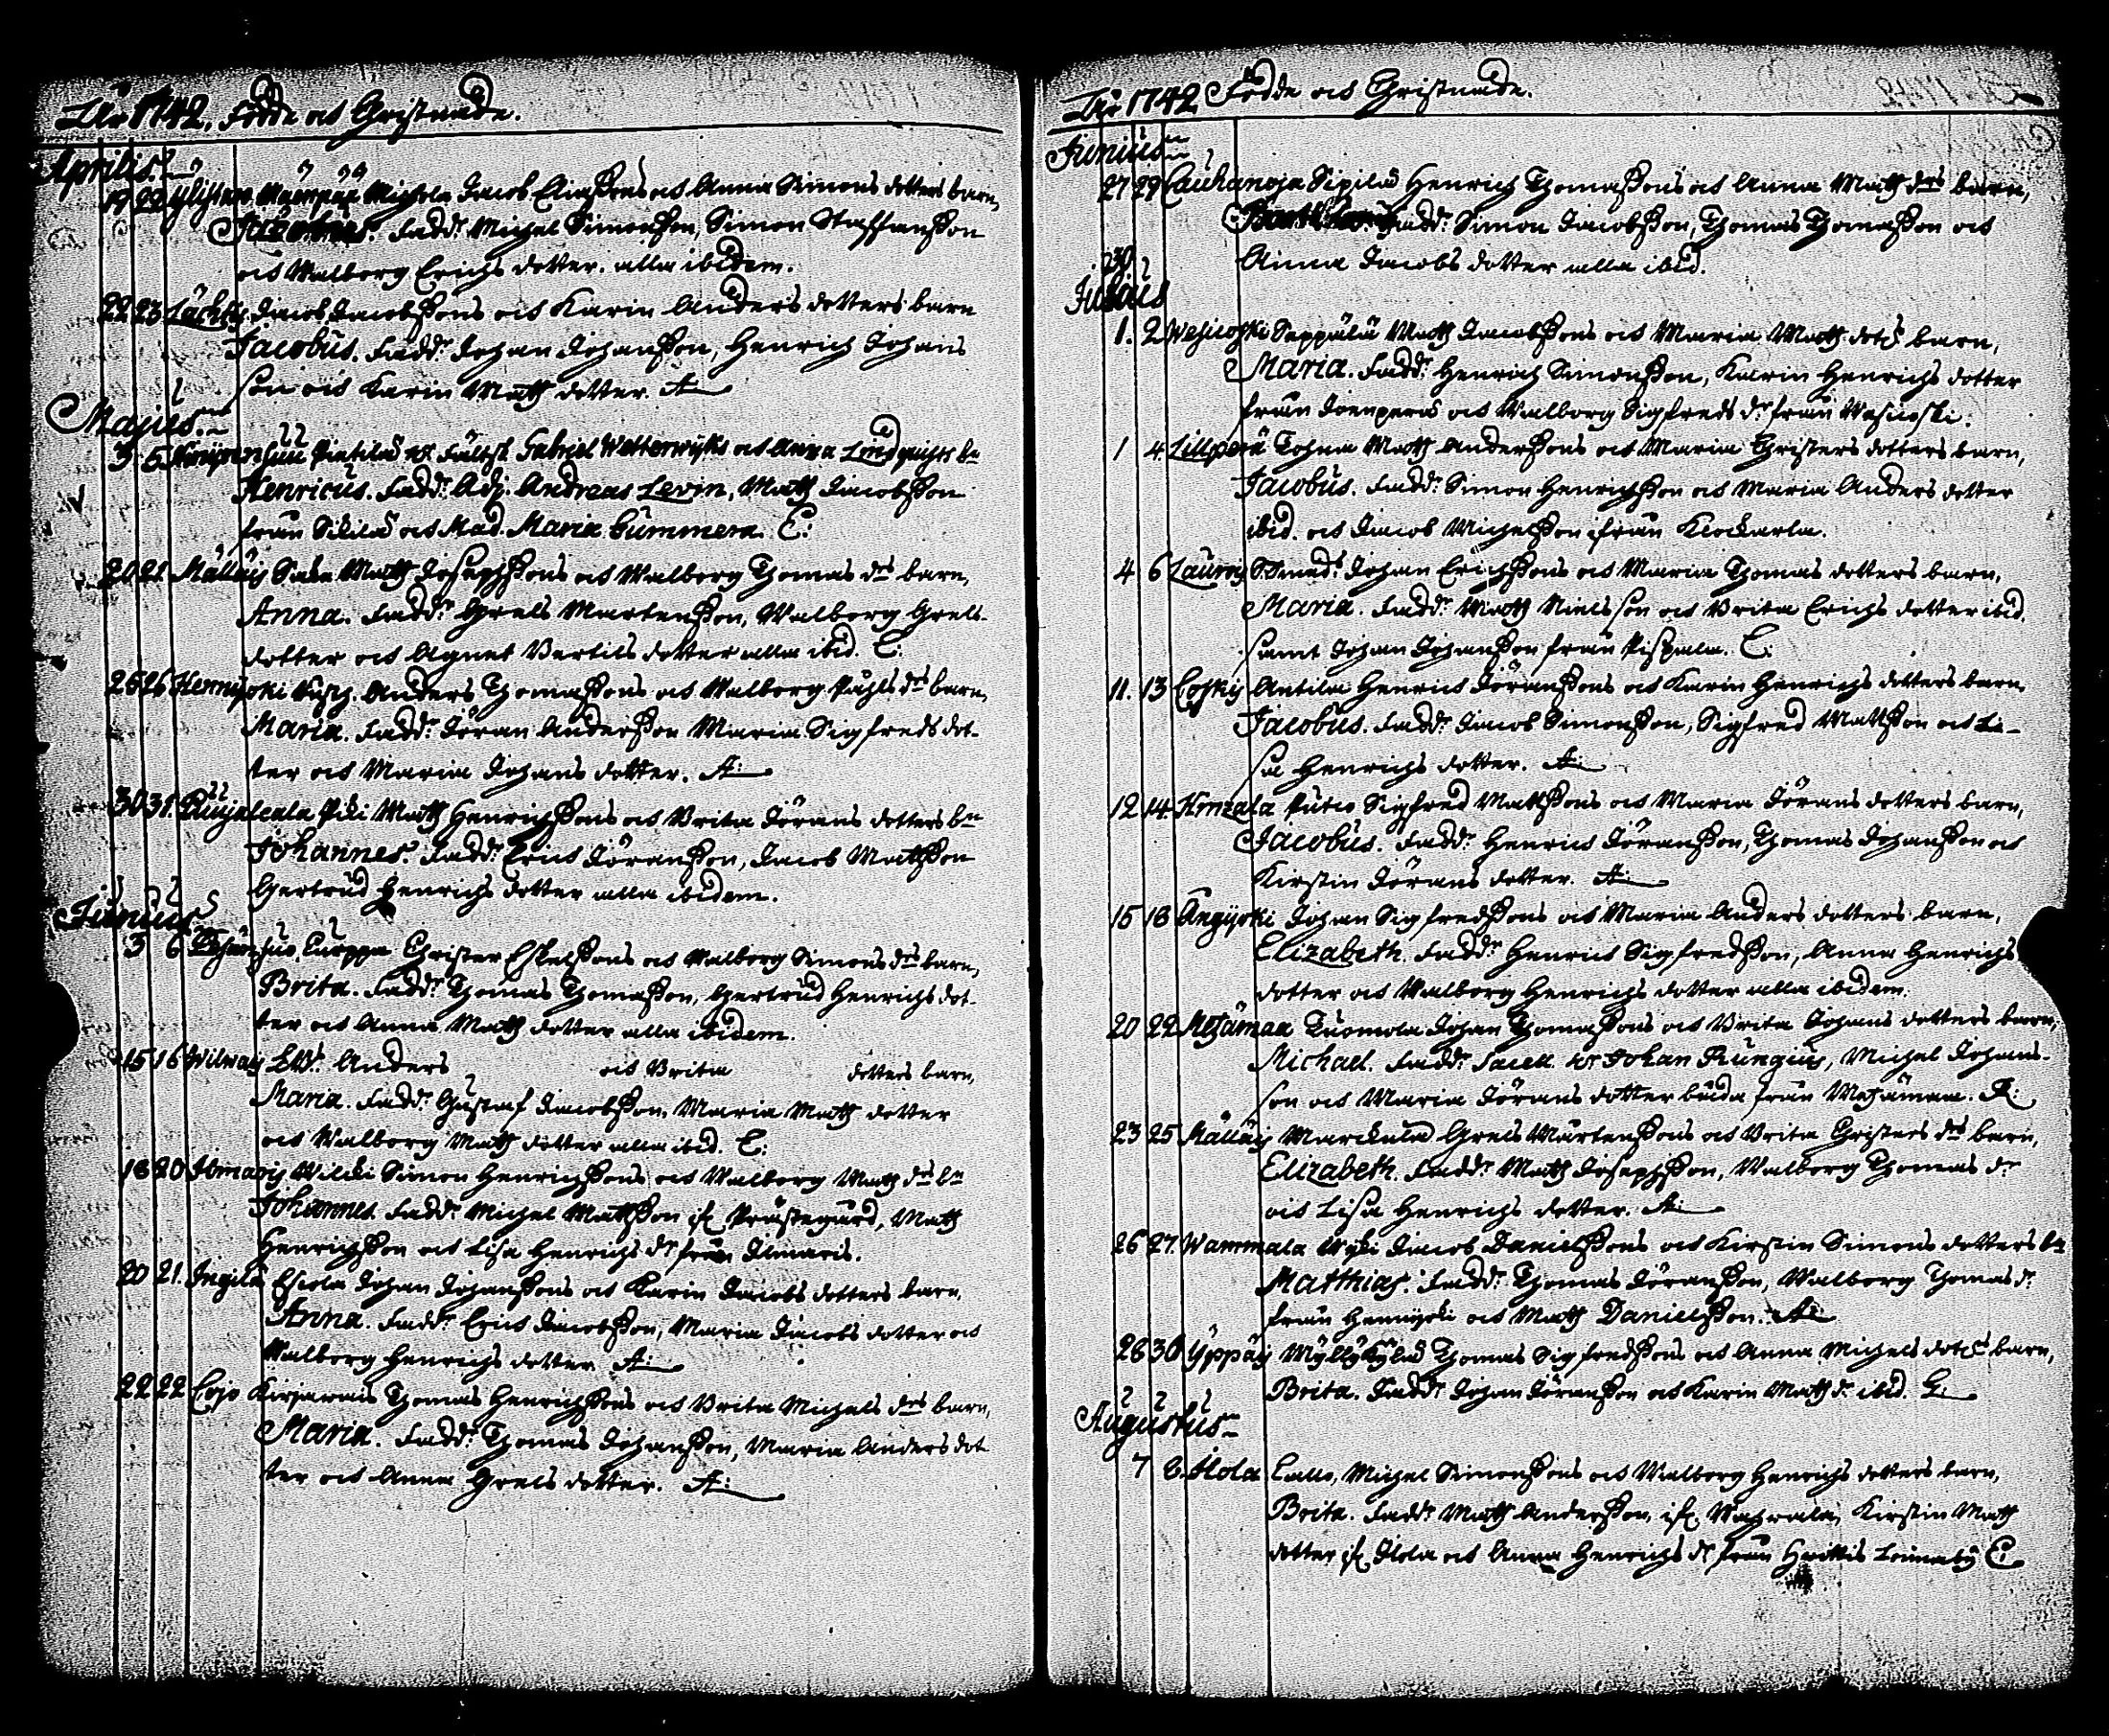 Åhr 1742. Födde och Christnade.
Aprilis.
19 22 Ylistaro Michola Jacob Eliæssons och Anna Simons dotters barn,
Fadd: Michel Simonsson, Simon Staffansson
och Walborg Erichs dotter. alla ibidem.
22 23 Jacob Jacobssons och Karin Anders dotters barn
Jacobus. Fadd: Johan Johansson, Henrich Johans
son och Karin Math dotter. A:
Majus.
3 5 Pietilä Gabriel Wetterwijks och Anna Lindquists bn
Henricus. Fadd: Adj. Andreas Levin, Math Jacobsson
från Sikilä och Mad. Maria Gummera. C:
20 21. Mälläis Saka Math Josephssons och Walborg Thomas drs barn,
Anna. Fadd: Grels Martensson, Walborg Grels
dotter och Agnes Bertils dotter alla ibid. C:
25 26 Hennijoki Anders Thomassons och Walborg Påhls drs barn,
Maria. Fadd: Jöran Andersson Maria Sigfreds dot-
ter och Maria Johans dotter. A:
30 31. Piki Math Henrichssons och Brita Jörans dotters bn
Johannes. Fadd: Erich Jöransson, Jacob Mathsson
Gertrud Henrichs dotter alla ibidem.
Junius
3 6 Lurppa Christer Eskelssons och Walborg Simons drs barn,
Brita. Fadd: Thomas Thomasson, Gertrud Henrichs dot-
ter och Anna Math dotter alla ibidem.
15 16 Anders och Brita dotters barn,
Maria. Fadd: Gustaf Jacobsson, Maria Math dotter
och Walborg Math dotter alla ibid. C:
18 20 Ilmaris Wilcki Simon Henrichssons och Walborg Math drs bn
Johannes. Fadd: Michel Mathsson if: Prästegård, Math
Henrichsson och Lisa Henrichs dr från Ilmaris.
20 21. Ingilä Eskola Johan Johanssons och Karin Jacobs dotters barn,
Anna. Fadd: Erich Jacobsson, Maria Jacobs dotter och
Walborg Henrichs dotter. A:
22 22 Cojo Kirjawais Thomas Henrichssons och Brita Michels drs barn,
Maria. Fadd: Thomas Johansson, Maria Anders dot
ter och Anna Grels dotter. A:
Åhr 1742 Födde och Christnade.
Junius
27 29 Cauhanoja Sipilä Henrich Thomassons och Anna Math drs barn,
Fadd: Simon Jacobsson, Thomas Thomasson och
30 Anna Jacobs dotter alla ibid.
Julius
1. 2 Wesikoski Seppälä Math Jacobssons och Maria Math dotrs barn,
Maria. Fadd: Henrich Simonsson, Karin Henrichs dotter
från Joenperä och Walborg Sigfreds dr från Wesikoski.
1 4. Lillperä Math Anderssons och Maria Christers dotters barn,
Jacobus. Fadd: Simon Henrichsson och Maria Anders dotter
ibid. och Jacob Michelsson från Klockarla.
4 6 Laurois Smeds Johan Erichssons och Maria Thomas dotters barn,
Maria. Fadd: Math Nielsson och Brita Erichs dotter ibid.
samt Johan Johansson från Pispala. C:
11. 13 Coskis Antila Henrich Jöranssons och Karin Henrichs dotters barn,
Jacobus. Fadd: Jacob Simonsson, Sigfred Mattsson och Li-
sa Henrichs dotter. A:
12 14. Kinzala Sigfred Mattssons och Maria Jörans dotters barn,
Jacobus. Fadd: Henrich Jöransson, Thomas Johansson och
Kirstin Jörans dotter. A:
15 18 Johan Sigfredssons och Maria Anders dotters barn,
Elizabeth. Fadd: Henrich Sigfredsson, Anna Henrichs
dotter och Walborg Henrichs dotter alla ibidem.
20 22 Metzämaa Tuomola Johan Thomassons och Brita Johans dotters barn,
Michael. Fadd: Sacell. Hr Johan Rungius, Michel Johans-
son och Maria Jörans dotter båda från Metzämaa. R:
23 25 Mälläis Marckula Grels Mårtenssons och Brita Christers drs barn,
Elizabeth. Fadd: Math Josephsson, Walborg Thomas dr
och Lisa Henrichs dotter. A:
26 27. Wammala Jacob Danielssons och Kirstin Simons dotters bn
Matthias. Fadd: Thomas Jöransson, Walborg Thomas dr
från Hennijoki och Math Danielsson. A:
28 30 Yppäis Myllykylä Thomas Sigfredssons och Anna Michels dotrs barn,
Brita. Fadd: Johan Jöransson och Karin Math dr ibid. G:
Augustus
7 8. Ilola Lallo, Michel Simonssons och Walborg Henrichs dotters barn,
Brita. Fadd: Math Andersson, if: Kirstin Math
dotter if: Ilola och Anna Henrichs dr från Huittis Lounaby C: